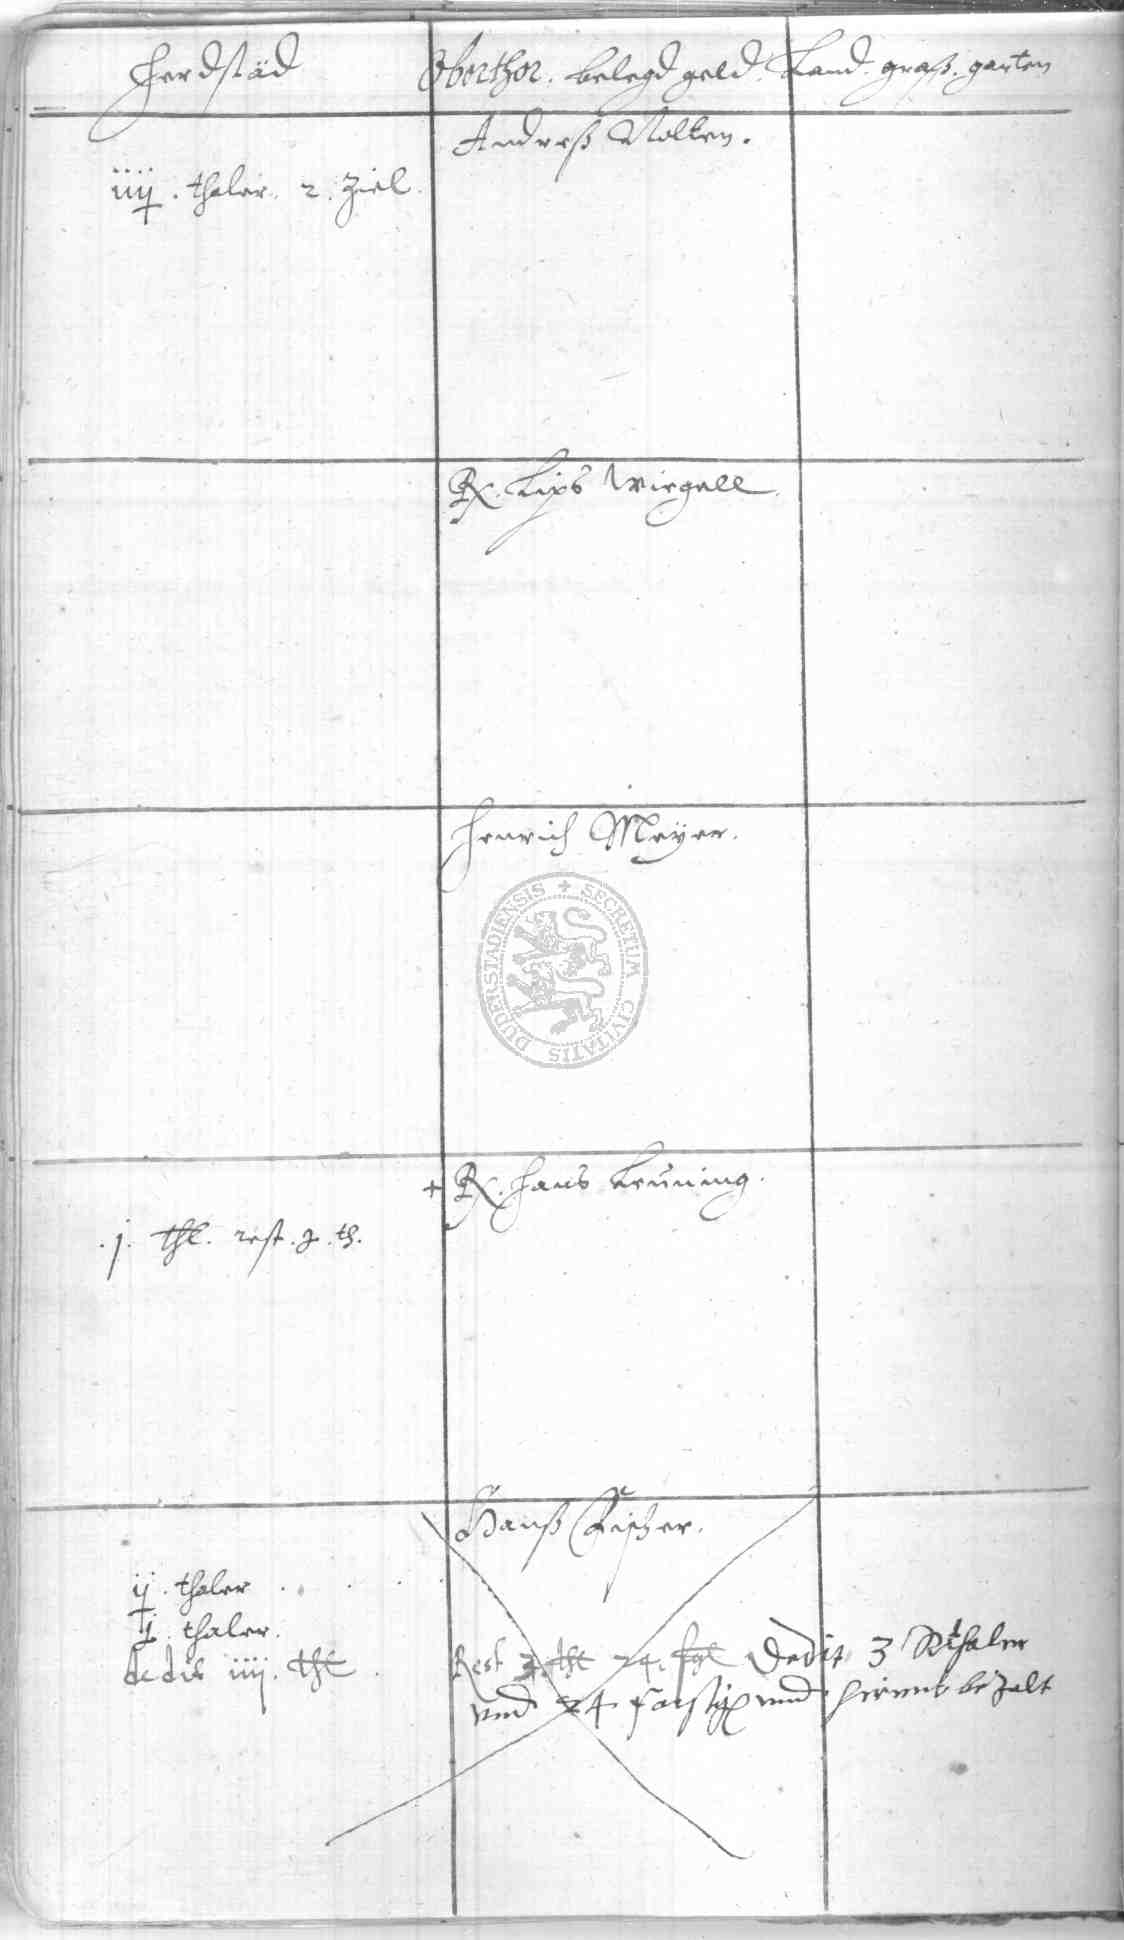 Herdstäd Oberthor. belegd geld. Land. graß. garten
Andreß Nolten.
iiij. thaler. 2. Ziel.
Rx. Lips Wirgall
Henrich Meÿer.
SECRETUM CIVITATIS DUDERSTADIENSIS
+ Rx. Hans Breüning.
.j. thl. rest. 2. th.
Hanß Fischer.
ij. thaler
j. thaler.
dedit iiij. thl. Rest 3. thl 24. fgl Dedit 3 Rthaler
vnd 24 vnd hiemit bezalt